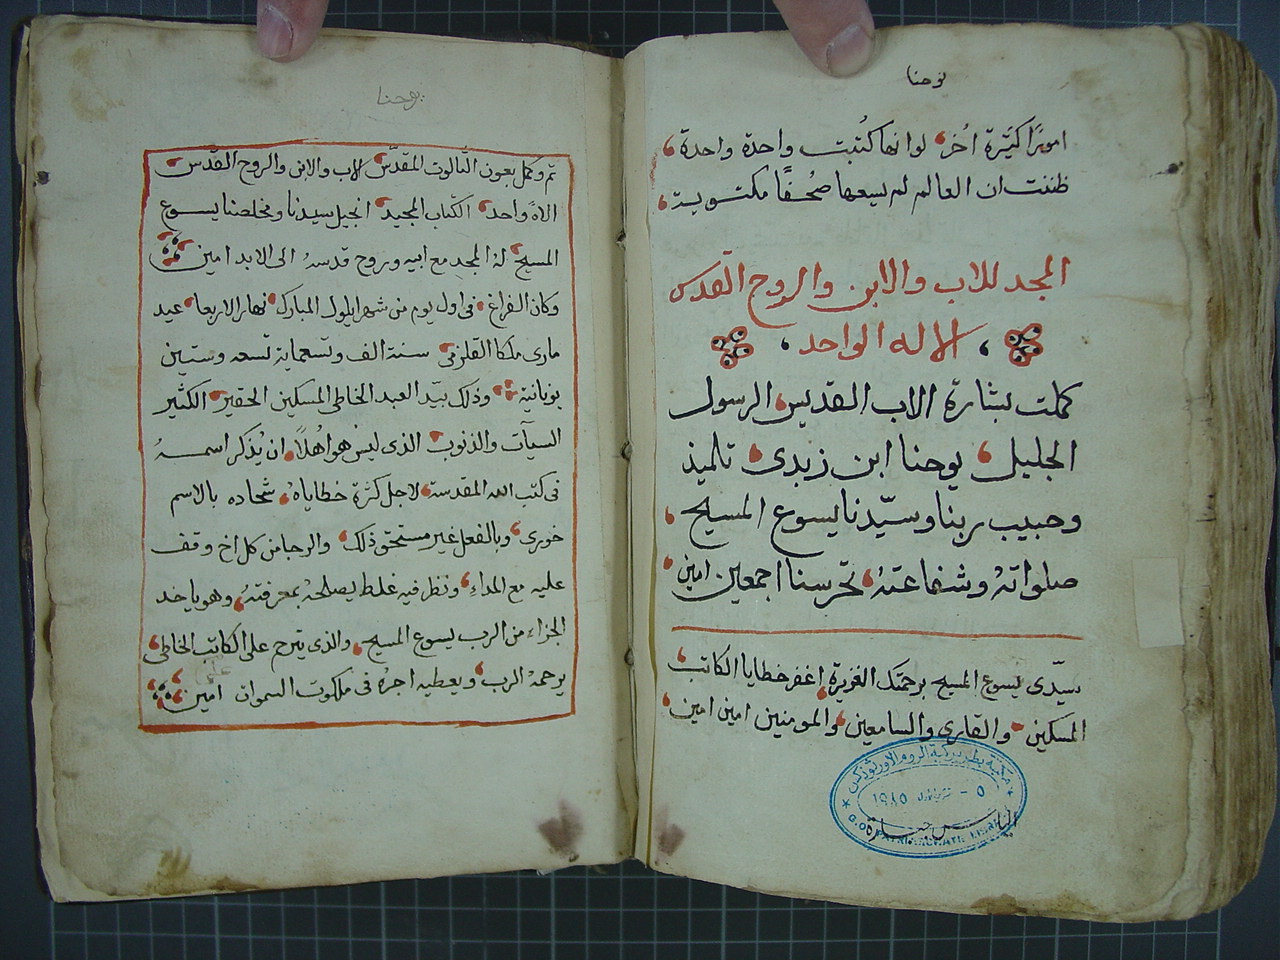 يوحنا
امورًا كثيرة اُخر لو انها كُتبت واحدة واحدة
ظننت ان العالم لم يسعها صُحُفًا مكتوبة
المجد للاب والابن والروح القدس
الاله الواحد
كملت بشارة الاب القديس الرسول
الجليل يوحنا ابن زبدى تلميذ
وحبيب ربنا وسيّدنا يسوع المسيح
صلواته وشفاعته تحرسنا اجمعين امين
سيّدى يسوع المسيح برحمتك الغزيرة اغفر خطايا الكاتب
المسكين والقارى والسامعين والمومنين امين امين
مكتبة بطريركية الروم الارثوذكس
٥ -
يوحنا
تم وكمل بعون الثالوث المقدّس الاب والابن والروح القدّس
الاهً واحد الكتاب المجيد انجيل سيدنا ومخلصنا يسوع
المسيح لهُ المجد مع ابيه وروح قدسهُ الى الابد امين
وكان الفراغ فى اول يوم من شهر ايلول المبارك نهار الاربعا عيد
مارى ملكا القلزمى سنة الف وتسعماية تسعه وستين
يونانية وذلك بيّد العبد الخاطى المسكين الحقير الكثير
السيآت والذنوب الذى ليس هو اهُلاً ان يُذكر اسمهُ
فى كتب الله المقدسة لاجل كثرة خطاياهُ شحاده بالاسم
خورى وبالفعل غير مستحق ذلك والرجا من كل اخ وقف
عليه مع المداء ونظر فيه غلط يصلحهُ بمعرفتهُ وهو ياخد
الجزاء من الرب يسوع المسيح والذى يترحم على الكاتب الخاطى
يرحمهُ الرب ويعطيه اجرهُ فى ملكوت السموات امين